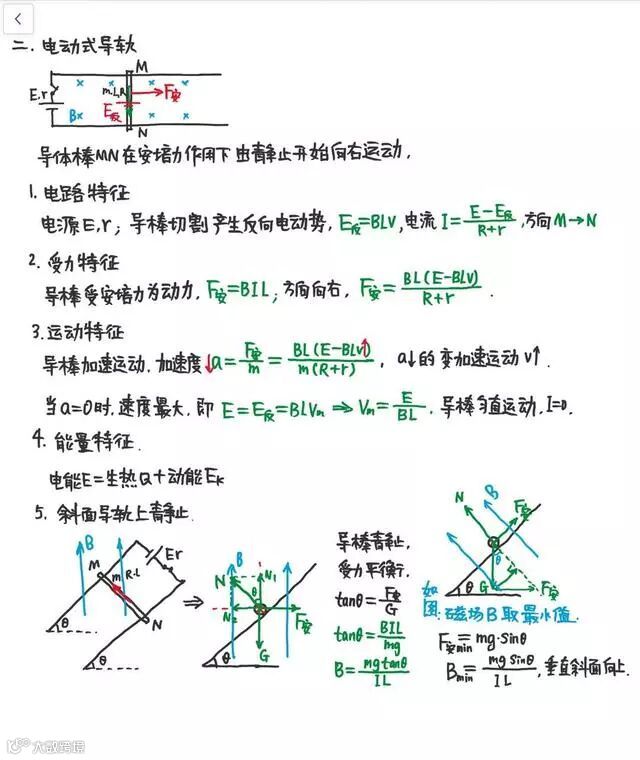 二. 电动式导轨
M
E.r
m.L.R
F安
B
E反
N
导体棒MN在安培力作用下由静止开始向右运动.
1. 电路特征
电源E,r; 导棒切割产生反向电动势, E反=BLV, 电流 I=(E-E反)/(R+r), 方向M→N
2. 受力特征
导棒受安培力为动力, F安=BIL; 方向向右, F安=BL(E-BLV)/(R+r).
3. 运动特征
导棒加速运动. 加速度↓a=F安/m=BL(E-BLV↑)/m(R+r), a↓的变加速运动V↑.
当a=0时, 速度最大, 即 E=E反=BLVm ⇒ Vm=E/BL. 导棒匀直运动, I=0.
4. 能量特征.
电能E=生热Q+动能EK
5. 斜面导轨上静止.
B
Er
M
m
R.L
N
θ
θ
⇒
B
N
N1
θ
N2
F安
G
θ
导棒静止,
受力平衡.
tanθ=F安/G
tanθ=BIL/mg
B=mgtanθ/IL
N
B
F安
θ
G
F安
θ
如图: 磁场B取最小值.
F安min=mg·sinθ
Bmin=mgsinθ/IL, 垂直斜面向上.
大数跨境